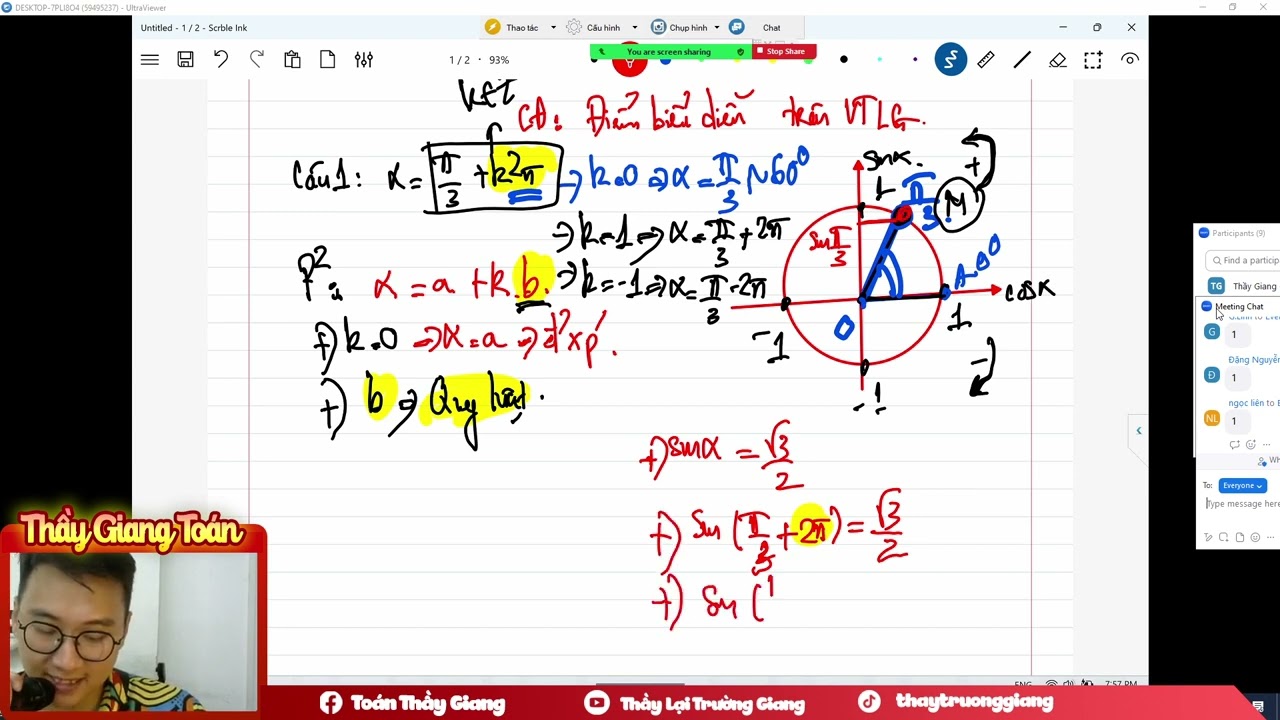 DESKTOP-7PLI8O4 (59495237) - UltraViewer
Untitled - 1 / 2 - Scrble Ink
Thao tác Cấu hình Chụp hình Chat
You are screen sharing Stop Share
1 / 2 · 93%
CĐ: Điểm biểu diễn trên VTLG.
Câu 1: α = π/3 + k2π → k=0 ⇒ α = π/3 ~ 60°
⇒ k=1 ⇒ α = π/3 + 2π
⇒ k=-1 ⇒ α = π/3 - 2π
P²: α = a + k.b.
+) k=0 ⇒ α = a ⇒ đ' xp'.
+) b ⇒ Quy luật.
sinα
+
1
π/3
M
sin π/3
A 0°
cosα
O
-1
1
-
-1
+) sinα = √3/2
+) sin (π/3 + 2π) = √3/2
+) sin (
Participants (9)
Find a particip
TG Thầy Giang
Meeting Chat
G 1
Đặng Nguyễn
Đ 1
ngọc liên to E
NL 1
To: Everyone
Type message here
ENG 7:57 PM
Thầy Giang Toán
Toán Thầy Giang
Thầy Lại Trường Giang
thaytruonggiang